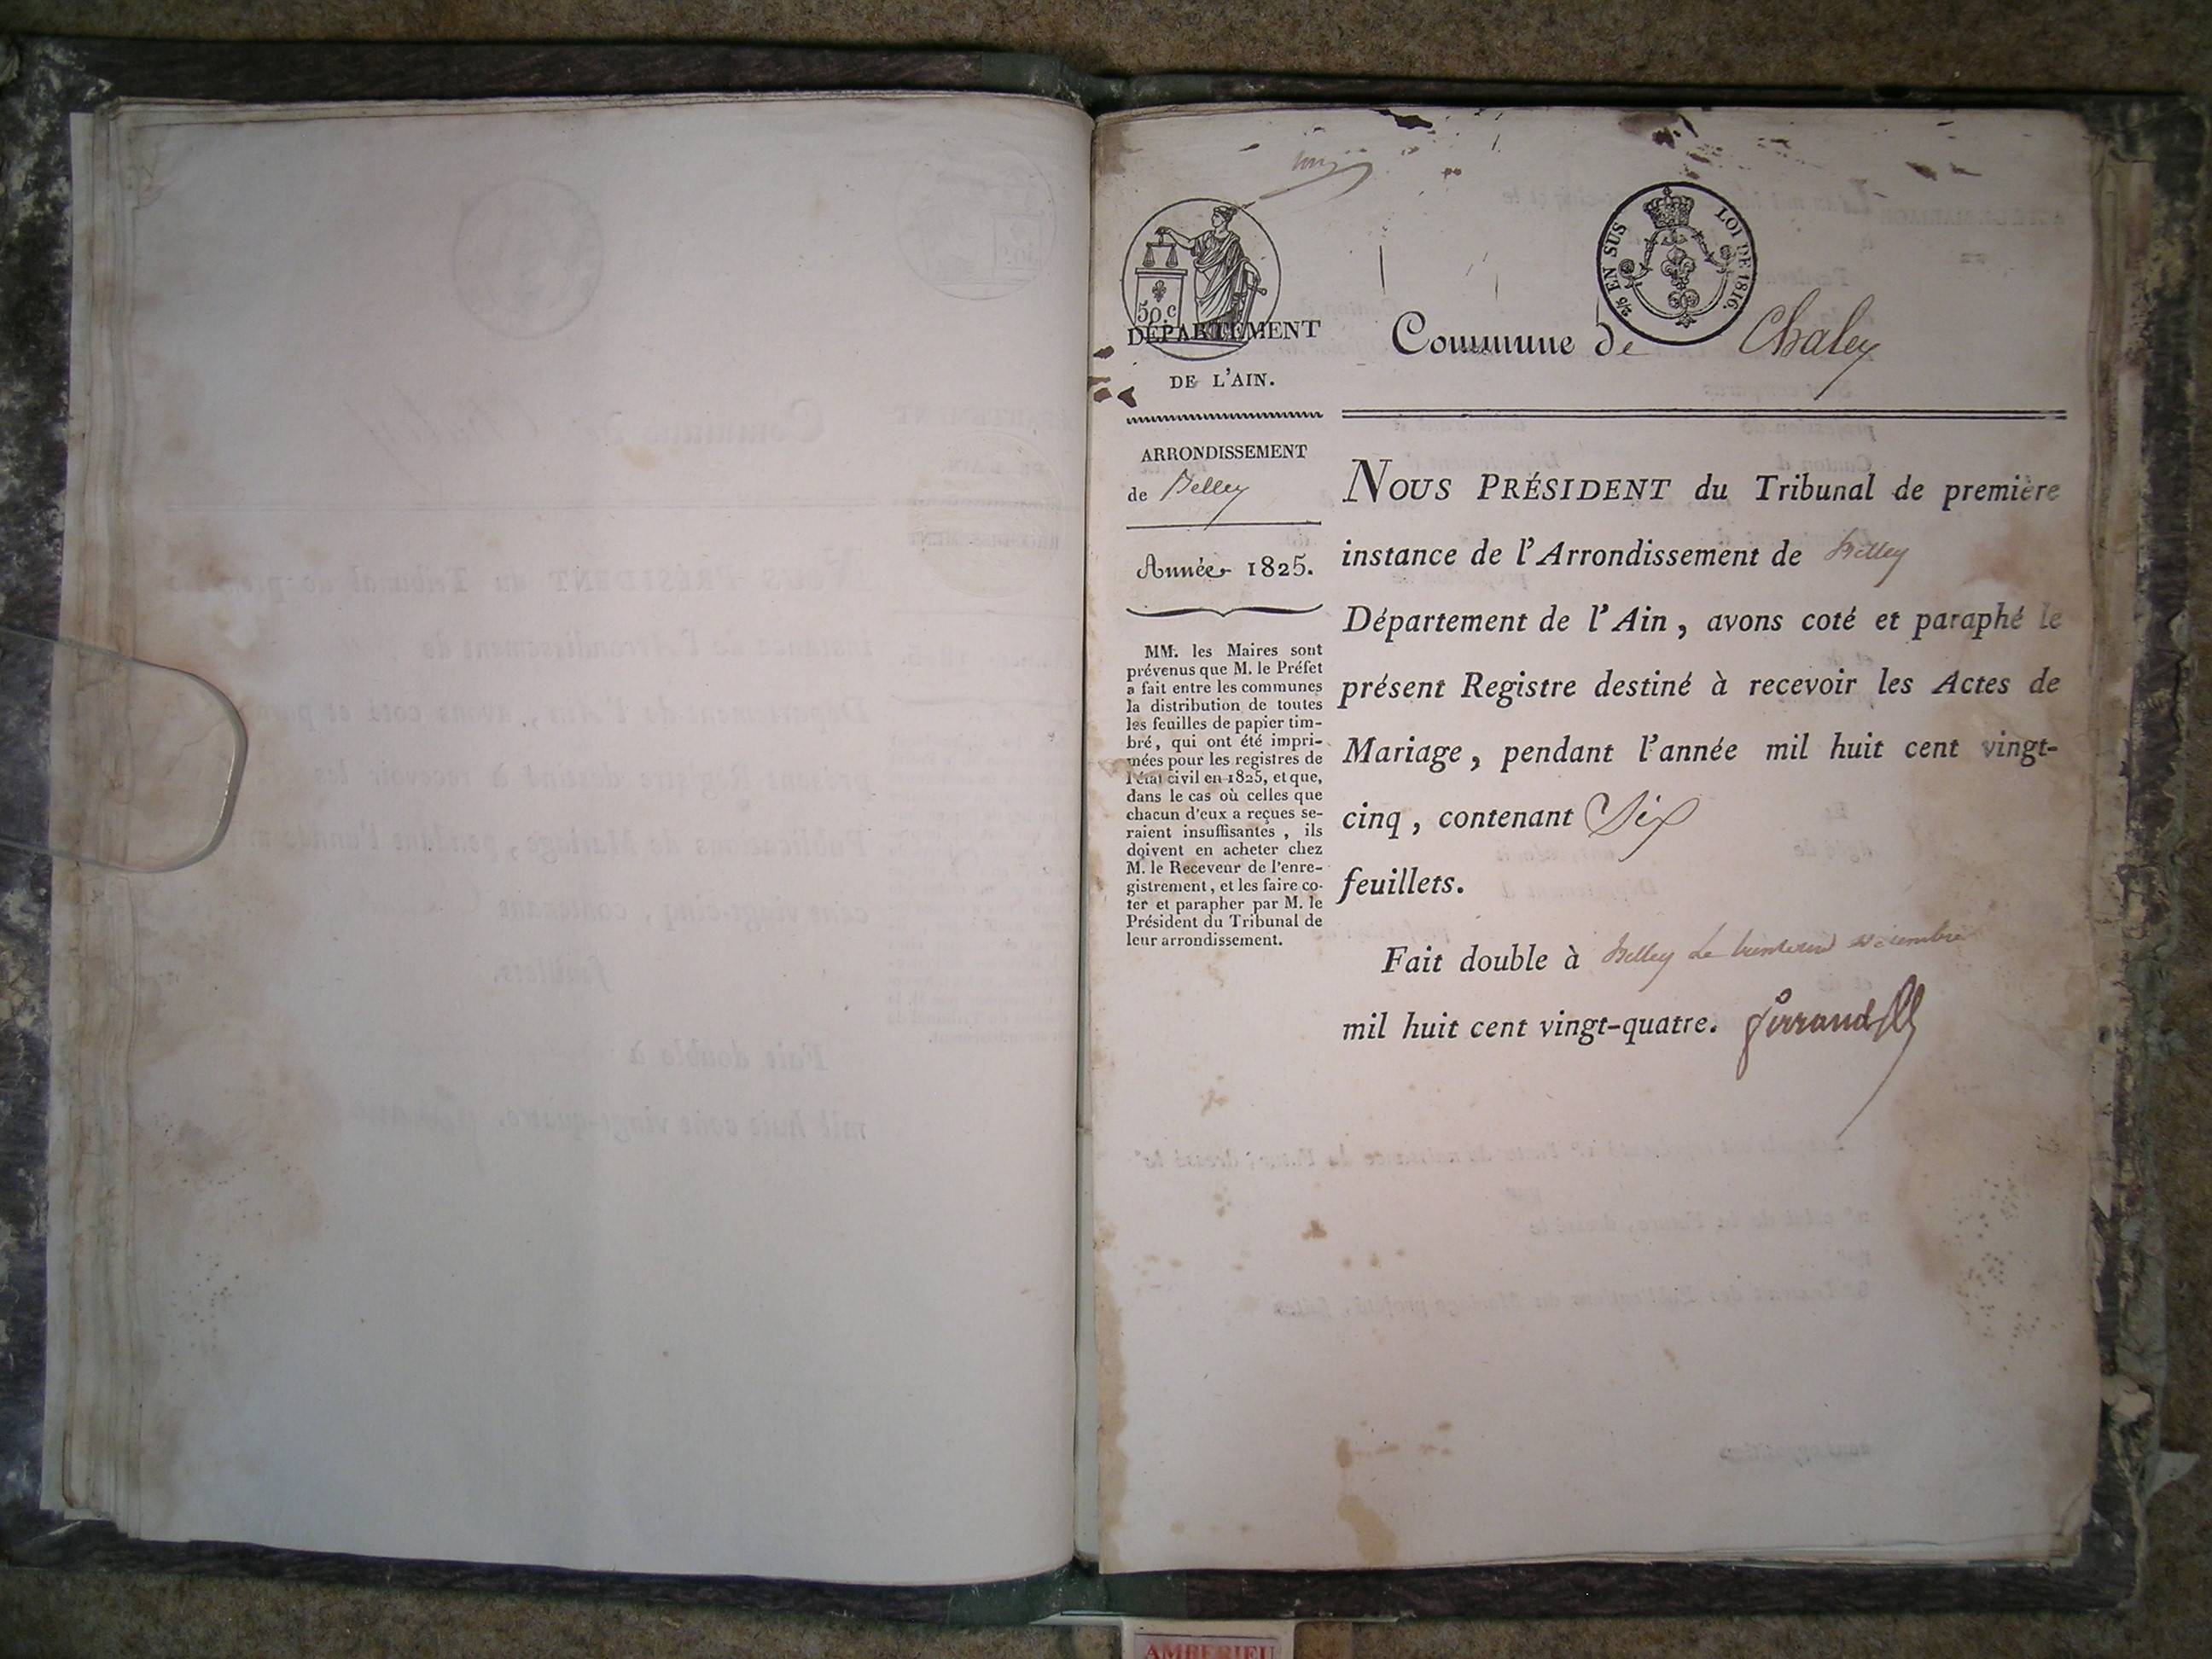 2/5 EN SUS LOI DE 1816.
50 c
DÉPARTEMENT
DE L'AIN.
Commune de Chaley
ARRONDISSEMENT
de Belley
Année 1825.
MM. les Maires sont
prévenus que M. le Préfet
a fait entre les communes
la distribution de toutes
les feuilles de papier tim-
bré, qui ont été impri-
mées pour les registres de
l'état civil en 1825, et que,
dans le cas où celles que
chacun d'eux a reçues se-
raient insuffisantes, ils
doivent en acheter chez
M. le Receveur de l'enre-
gistrement, et les faire co-
ter et parapher par M. le
Président du Tribunal de
leur arrondissement.
NOUS PRÉSIDENT du Tribunal de première
instance de l'Arrondissement de Belley
Département de l'Ain, avons coté et paraphé le
présent Registre destiné à recevoir les Actes de
Mariage, pendant l'année mil huit cent vingt-
cinq, contenant Six
feuillets.
Fait double à Belley Le trente un décembre
mil huit cent vingt-quatre.
AMBERIEU